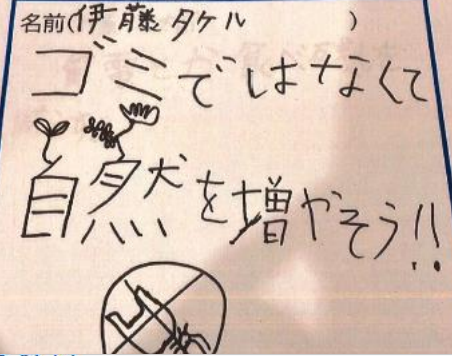 名前(伊藤タケル)
ゴミではなくて
自然を増やそう!!